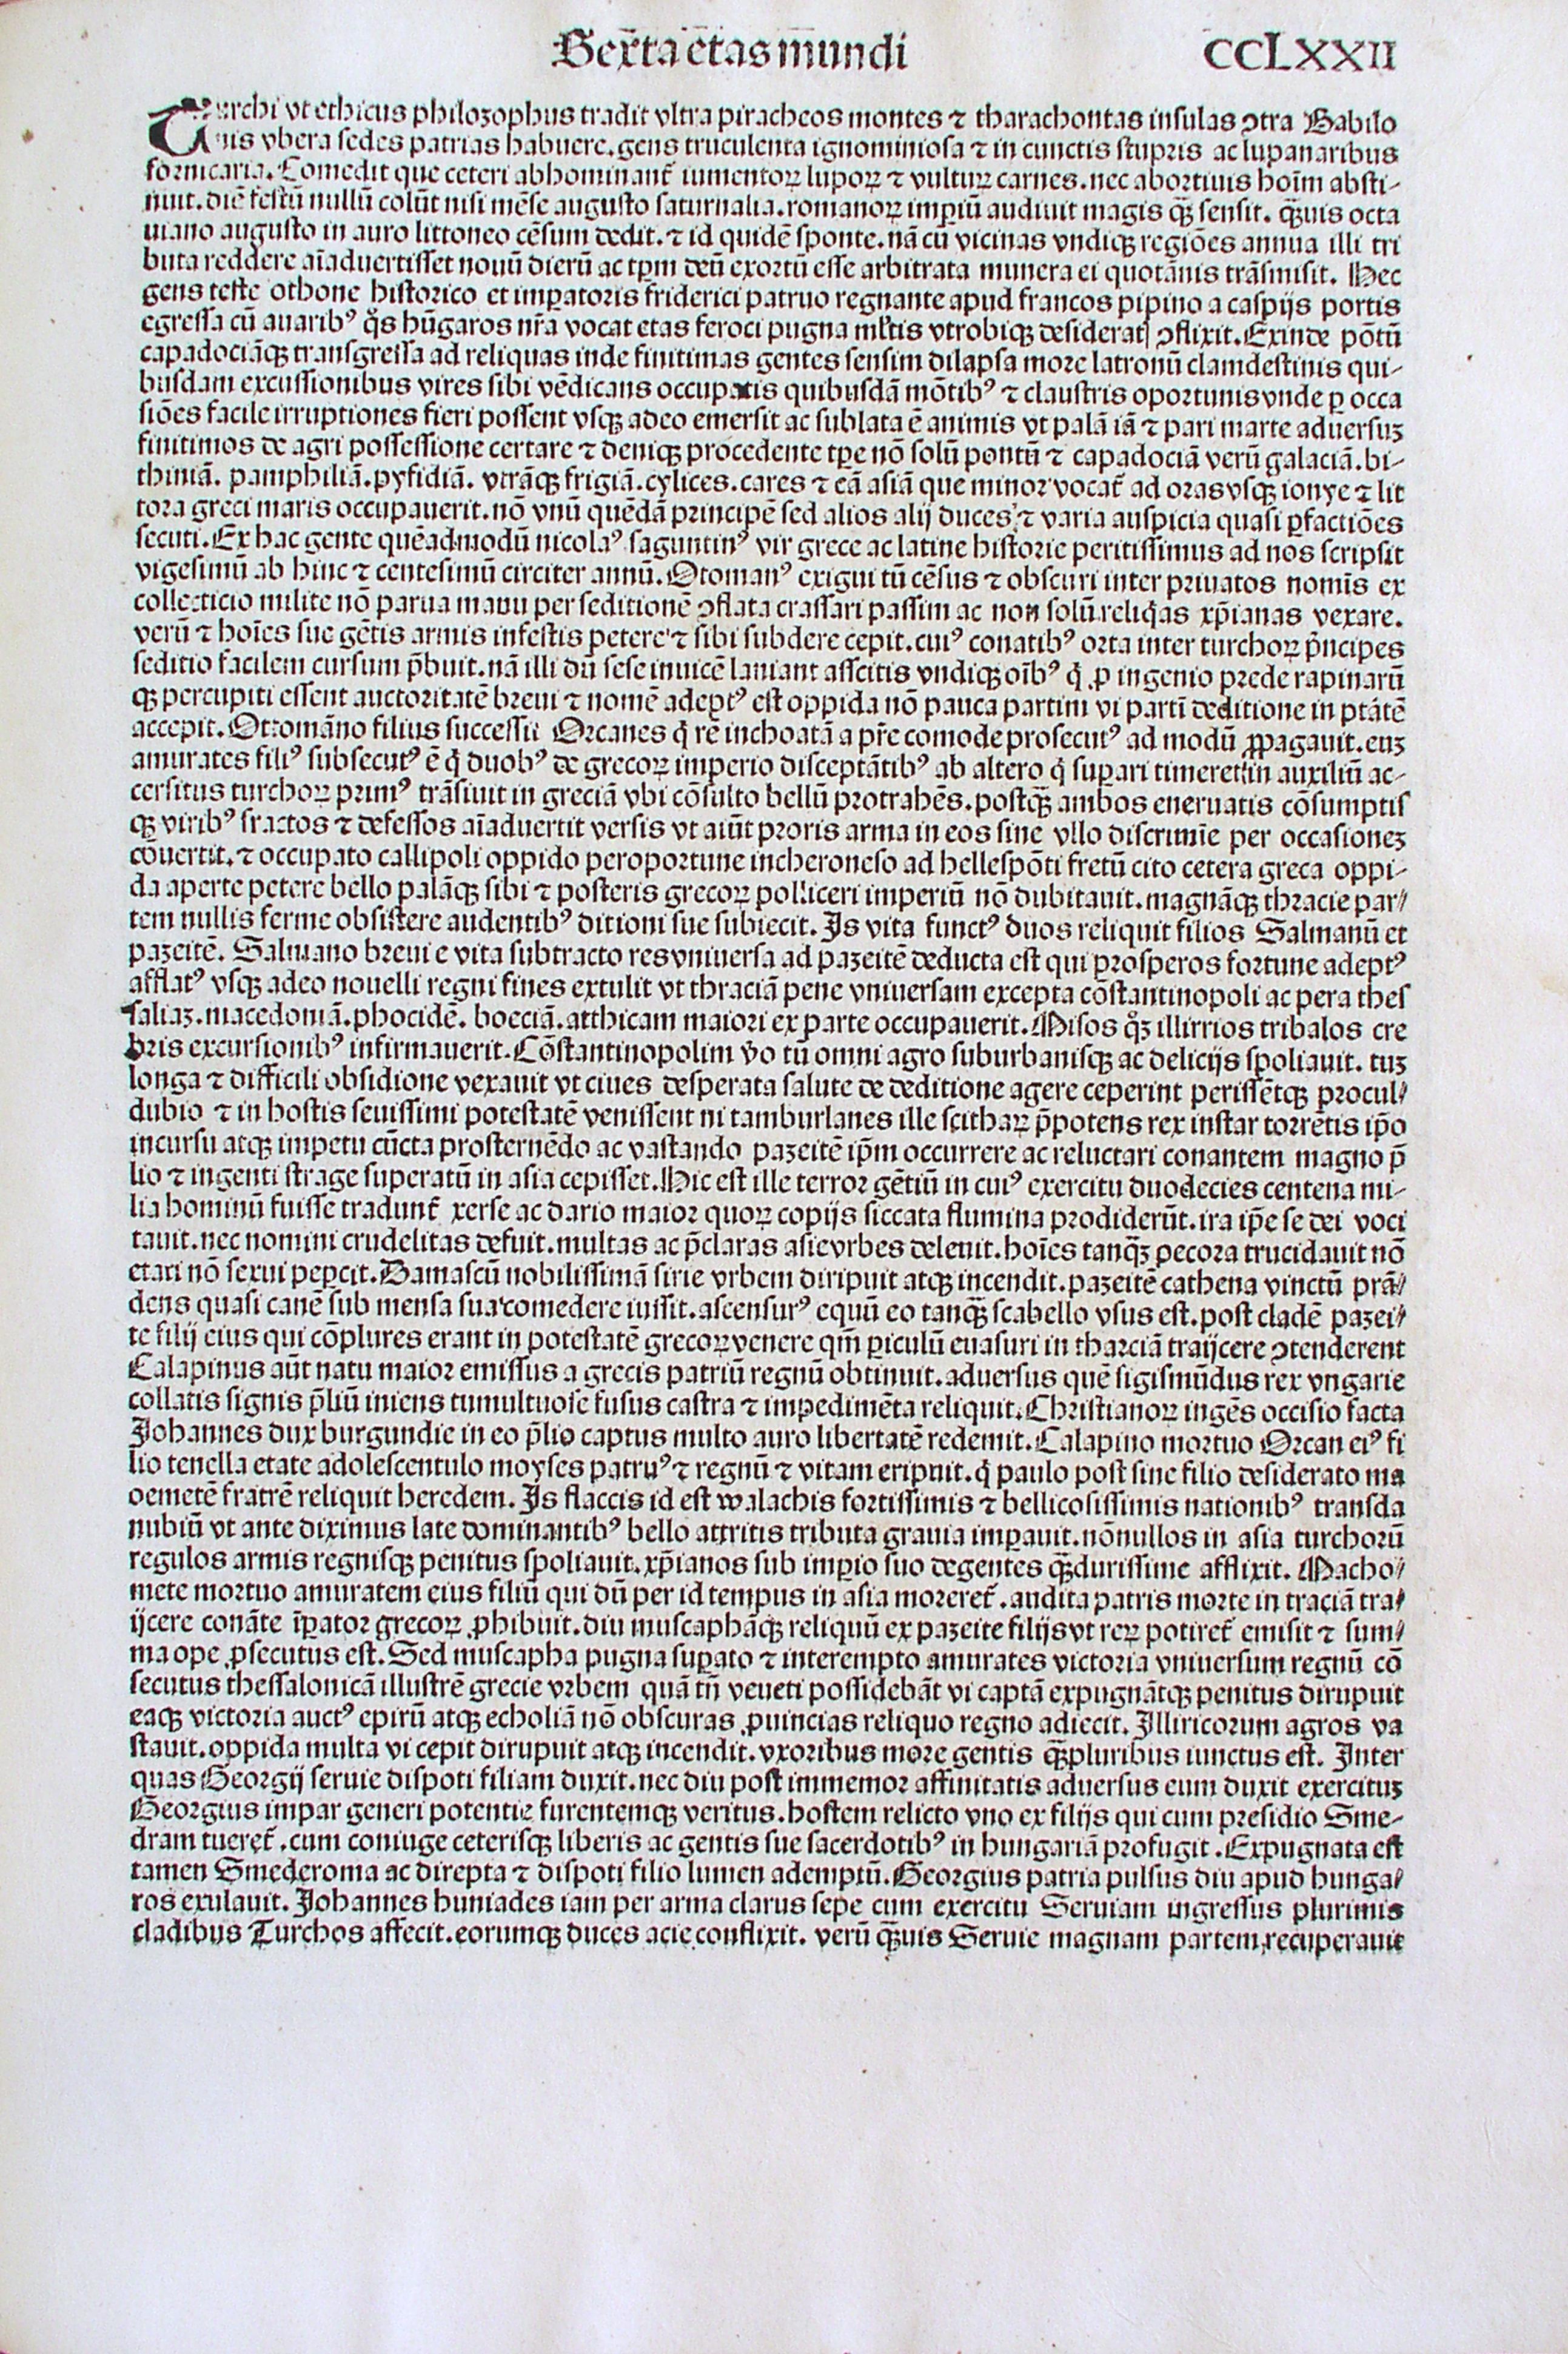 Sexta etas mundi CCLXXII
Turchi vt ethicus philozophus tradit vltra piracheos montes ⁊ tharachontas insulas ↄtra Babilo
nis vbera sedes patrias habuere. gens truculenta ignominiosa ⁊ in cunctis stupris ac lupanaribus
fornicaria. Comedit que ceteri abhominanť iumentoꝝ lupoꝝ ⁊ vultuꝝ carnes. nec abortiuis hoīm absti-
nuit. diē festū nullū colūt nisi mēse augusto saturnalia. romanoꝝ imꝑiū audiuit magis ꝙ̄ sensit. ꝙ̄uis octa
uiano augusto in auro littoneo cēsum dedit. ⁊ id quidē sponte. nā cū vicinas vndiqꝫ regiōes annua illi tri
buta reddere aīaduertisset nouū dierū ac tꝑm deū exortū esse arbitrata munera ei quotānis trāsmisit. Hec
gens teste othone historico et imꝑatoris friderici patruo regnante apud francos pipino a caspijs portis
egressa cū auaribꝰ q̊s hūgaros nr̄a vocat etas feroci pugna ml̄tis vtrobiqꝫ desideratꝭ ↄflixit. Exinde pōtū
capadociāqꝫ transgressa ad reliquas inde finitimas gentes sensim dilapsa more latronū clamdestinis qui-
busdam excussionibus vires sibi vēdicans occupatis quibusdā mōtibꝰ ⁊ claustris oportunis vnde ꝑ occa
siōes facile irruptiones fieri possent vsqꝫ adeo emersit ac sublata ē animis vt palā iā ⁊ pari marte aduersuꝫ
finitimos de agri possessione certare ⁊ deniqꝫ procedente tꝑe nō solū pontū ⁊ capadociā verū galaciā. bi-
thiniā. pamphiliā. pyfidiā. vtrāqꝫ frigiā. cylices. cares ⁊ eā asiā que minor vocať ad oras vsqꝫ ionye ⁊ lit
tora greci maris occupauerit. nō vnū quēdā principē sed alios alij duces ⁊ varia auspicia quasi ꝑfactiōes
secuti. Ex hac gente quēadmodū nicolaꝰ saguntinꝰ vir grece ac latine historie peritissimus ad nos scripsit
vigesimū ab hinc ⁊ centesimū circiter annū. Otomanꝰ exigui tū cēsus ⁊ obscuri inter priuatos nomīs ex
collecticio milite nō parua manu per seditionē ↄflata crassari passim ac non solū reliq̇as xp̄ianas vexare.
verū ⁊ hoīes sue gētis armis infestis petere ⁊ sibi subdere cepit. cuiꝰ conatibꝰ orta inter turchoꝝ pñcipes
seditio facilem cursum p̄buit. nā illi dū sese inuicē laniant asscitis vndiqꝫ oībꝰ q̇ ꝓ ingenio prede rapinarū
qꝫ percupiti essent auctoritatē breui ⁊ nomē adeptꝰ est oppida nō pauca partim vi partī deditione in ptātē
accepit. Ottomāno filius successit Orcanes q̇ rē inchoatā a pr̄e comode prosecutꝰ ad modū ꝓpagauit. euꝫ
amurates filiꝰ subsecutꝰ ē q̇ duobꝰ de grecoꝝ imperio disceptātibꝰ ab altero q̇ suꝑari timeret in auxiliū ac-
cersitus turchoꝝ primꝰ trāsiuit in greciā vbi cōsulto bellū protrahēs. postꝙ̄ ambos eneruatis cōsumptis
qꝫ viribꝰ fractos ⁊ defessos aīaduertit versis vt aiūt proris arma in eos sine vllo discrimīe per occasioneꝫ
cōuertit. ⁊ occupato callipoli oppido peroportune incheroneso ad hellespōti fretū cito cetera greca oppi-
da aperte petere bello palāqꝫ sibi ⁊ posteris grecoꝝ polliceri imperiū nō dubitauit. magnāqꝫ thracie par-
tem nullis ferme obsistere audentibꝰ ditioni sue subiecit. Is vita functꝰ duos reliquit filios Salmanū et
pazeitē. Salmano breui e vita subtracto res vniuersa ad pazeitē deducta est qui prosperos fortune adeptꝰ
afflatꝰ vsqꝫ adeo nouelli regni fines extulit vt thraciā pene vniuersam excepta cōstantinopoli ac pera thes
saliaꝫ. macedoniā. phocidē. boeciā. atthicam maiori ex parte occupauerit. Misos q̊ꝫ illirrios tribalos cre
bris excursionibꝰ infirmauerit. Cōstantinopolim v̄o tū omni agro suburbanisqꝫ ac delicijs spoliauit. tuꝫ
longa ⁊ difficili obsidione vexauit vt ciues desperata salute de deditione agere ceperint perissētqꝫ procul-
dubio ⁊ in hostis seuissimi potestatē venissent ni tamburlanes ille scithaꝝ p̄potens rex instar torrētis ip̄o
incursu atqꝫ impetu cūcta prosternēdo ac vastando pazeitē ip̄m occurrere ac reluctari conantem magno p̄
lio ⁊ ingenti strage superatū in asia cepisset. Hic est ille terror gētiū in cuiꝰ exercitu duodecies centena mi-
lia hominū fuisse tradunť xerse ac dario maior quoꝝ copijs siccata flumina prodiderūt. ira ip̄e se dei voci
tauit. nec nomini crudelitas defuit. multas ac p̄claras asie vrbes deleuit. hoīes tanꝙ̄ꝫ pecora trucidauit nō
etati nō sexui pepcit. Damascū nobilissimā sirie vrbem diripuit atqꝫ incendit. pazeitē cathena vinctū prā-
dens quasi canē sub mensa sua comedere iussit. ascensurꝰ equū eo tanꝙ̄ scabello vsus est. post cladē pazei-
te filij eius qui cōplures erant in potestatē grecoꝝ venere qm̄ ꝑiculū euasuri in tharciā traijcere ↄtenderent
Calapinus aūt natu maior emissus a grecis patriū regnū obtinuit. aduersus quē sigismūdus rex vngarie
collatis signis p̄liū iniens tumultuose fusus castra ⁊ impedimēta reliquit. Christianoꝝ ingēs occisio facta
Johannes dux burgundie in eo p̄lio captus multo auro libertatē redemit. Calapino mortuo Orcan eiꝰ fi
lio tenella etate adolescentulo moyses patruꝰ ⁊ regnū ⁊ vitam eripuit. q̇ paulo post sine filio desiderato ma
oemetē fratrē reliquit heredem. Is flaccis id est walachis fortissimis ⁊ bellicosissimis nationibꝰ transda
nubiū vt ante diximus late dominantibꝰ bello attritis tributa grauia imꝑauit. nōnullos in asia turchorū
regulos armis regnisqꝫ penitus spoliauit. xp̄ianos sub imꝑio suo degentes ꝙ̄durissime afflixit. Macho-
mete mortuo amuratem eius filiū qui dū per id tempus in asia moreretˀ. audita patris morte in traciā tra-
ijcere conāte īꝑator grecoꝝ ꝓhibuit. diu muscaphāqꝫ reliquū ex pazeite filijs vt reꝝ potireť emisit ⁊ sum-
ma ope ꝓsecutus est. Sed muscapha pugna suꝑato ⁊ interempto amurates victoria vniuersum regnū cō
secutus thessalonicā illustrē grecie vrbem quā tn̄ veneti possidebāt vi captā expugnātqꝫ penitus dirupuit
eaqꝫ victoria auctꝰ epirū atqꝫ echoliā nō obscuras ꝓuincias reliquo regno adiecit. Illiricorum agros va
stauit. oppida multa vi cepit dirupuit atqꝫ incendit. vxoribus more gentis ꝙ̄pluribus iunctus est. Inter
quas Georgij seruie dispoti filiam duxit. nec diu post immemor affinitatis aduersus eum duxit exercituꝫ
Georgius impar generi potentie furentemqꝫ veritus. hostem relicto vno ex filijs qui cum presidio Sme-
dram tuereť. cum coniuge ceterisqꝫ liberis ac gentis sue sacerdotibꝰ in hungariā profugit. Expugnata est
tamen Smederoma ac direpta ⁊ dispoti filio lumen ademptū. Georgius patria pulsus diu apud hunga-
ros exulauit. Johannes huniades iam per arma clarus sepe cum exercitu Seruiam ingressus plurimis
cladibus Turchos affecit. eorumqꝫ duces acie conflixit. verū ꝙ̄uis Seruie magnam partem recuperauit